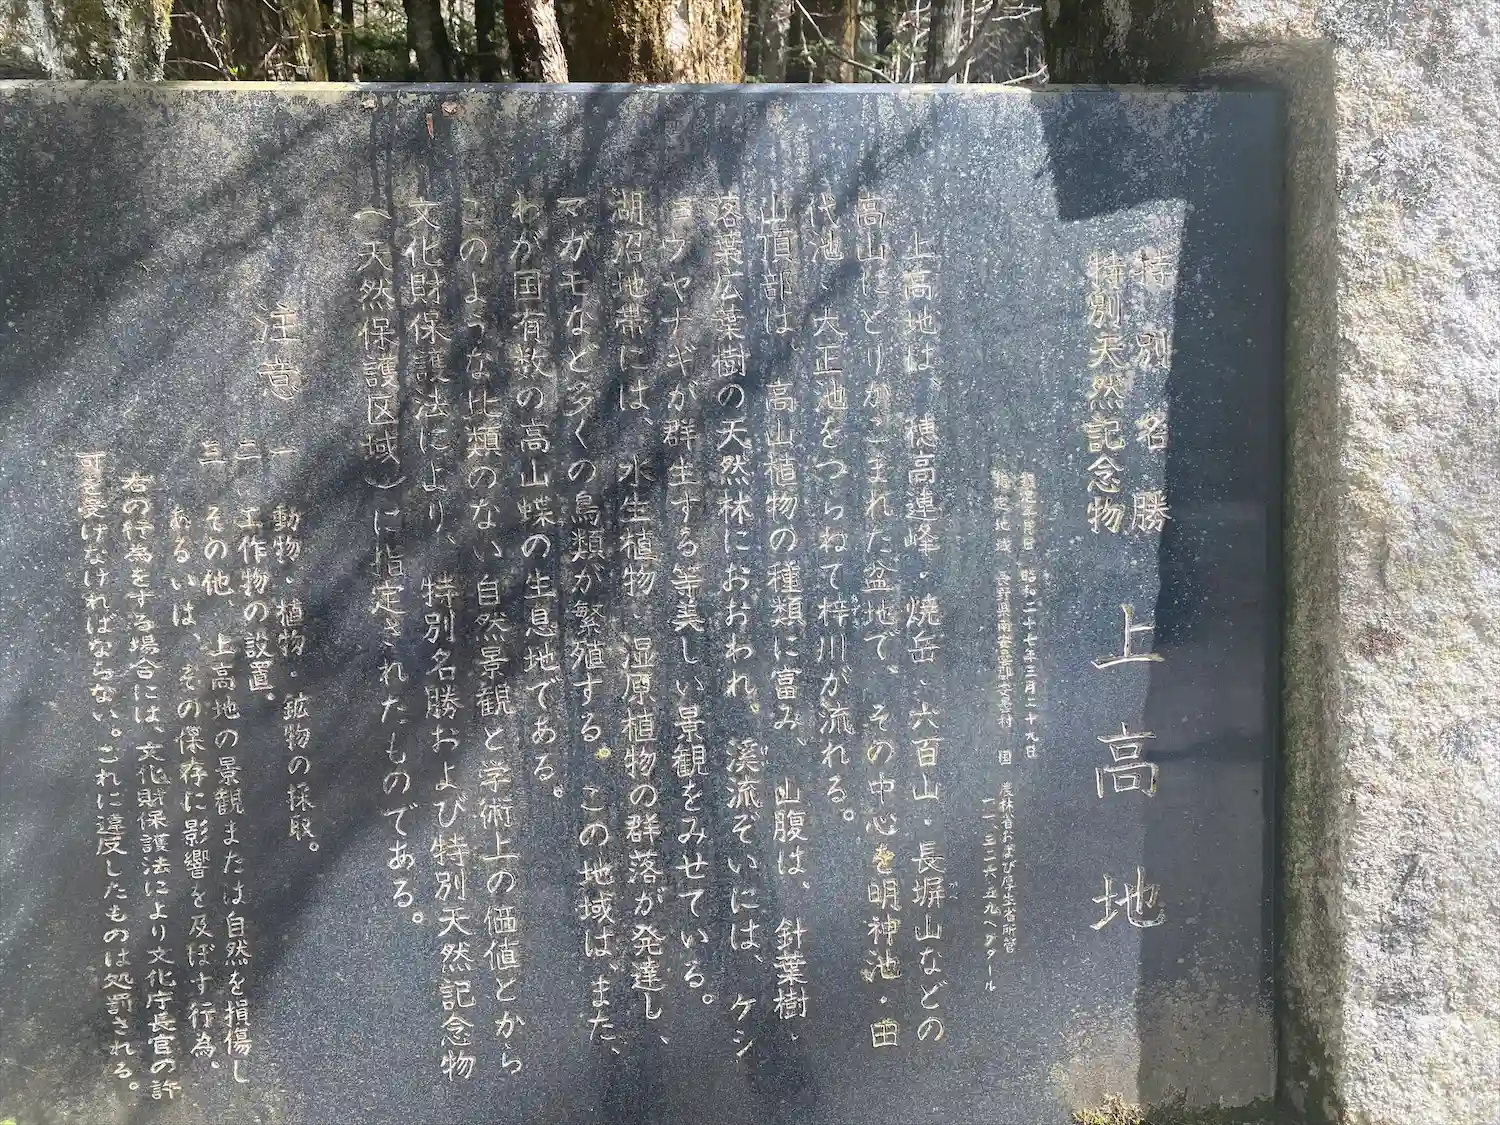 特別名勝
特別天然記念物
上高地
指定年月日 昭和二十七年三月二十九日
指定地域 長野県南安曇郡安曇村 国 農林省および厚生省所管
一一三二六五九ヘクタール
上高地は、穂高連峰・焼岳・六百山・長塀山などの
高山にとりかこまれた盆地で、その中心を明神池・田
代池・大正池をつらねて梓川が流れる。
山頂部は、高山植物の種類に富み、山腹は、針葉樹・
落葉広葉樹の天然林におおわれ。渓流ぞいには、ケシ
ョウヤナギが群生する等美しい景観をみせている。
湖沼地帯には、水生植物・湿原植物の群落が発達し、
マガモなど多くの鳥類が繁殖する。この地域は、また、
わが国有数の高山蝶の生息地である。
このような比類のない自然景観と学術上の価値とから
文化財保護法により、特別名勝および特別天然記念物
(天然保護区域)に指定されたものである。
注意
一 動物・植物・鉱物の採取。
二 工作物の設置。
三 その他、上高地の景観または自然を損傷し
あるいは、その保存に影響を及ぼす行為。
右の行為をする場合には、文化財保護法により文化庁長官の許
可を受けなければならない。これに違反したものは処罰される。